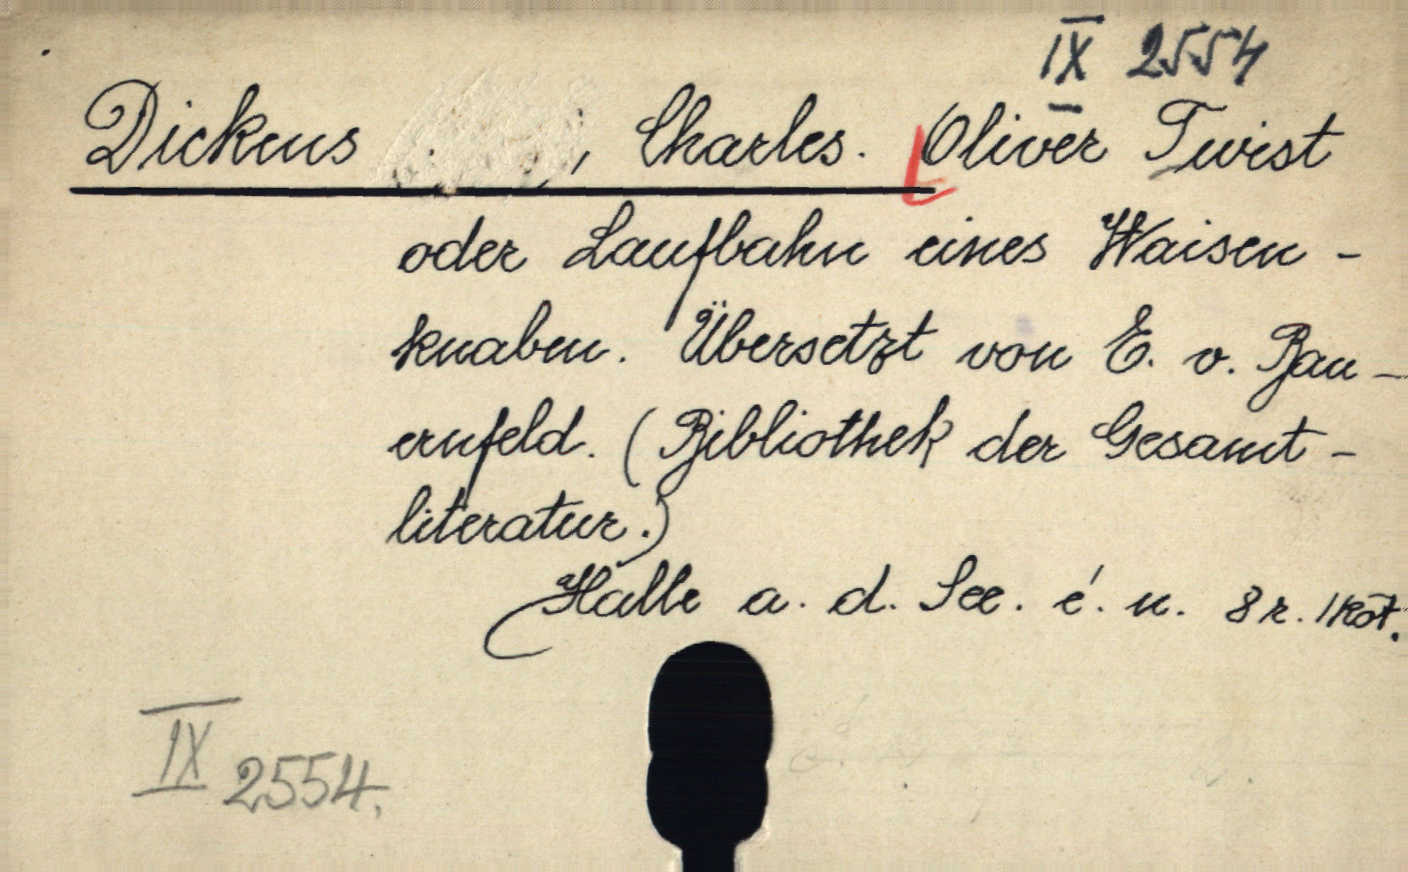 IX 2554
Dickens , Charles. Oliver Twist
oder Laufbahn eines Waisen-
knaben. Übersetzt von E. v. Bau-
ernfeld. (Bibliothek der Gesamt-
literatur.)
Halle a. d. See. é. n. 8r. 1 köt.
IX 2554.